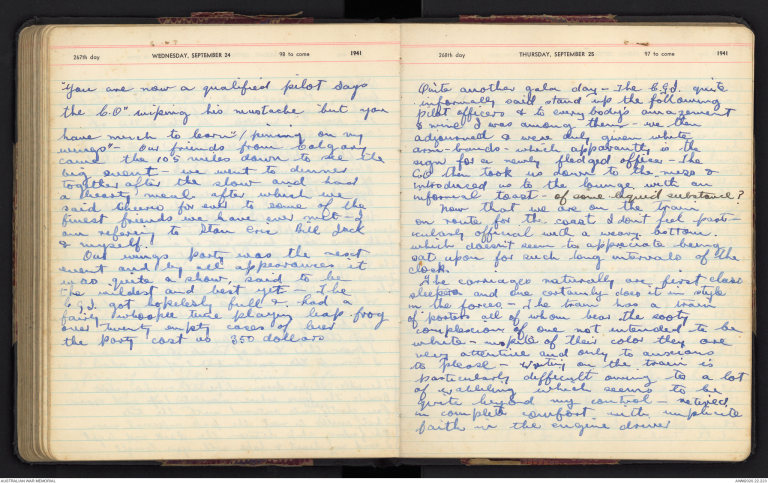 267th day WEDNESDAY, SEPTEMBER 24 98 to come 1941
"You are now a qualified pilot says
the C.O" wiping his mustache "but you
have much to learn" (pinning on my
wings" - Our friends from Calgary
came the 105 miles down to see the
big event - we went to dinner
together after the show and had
a hearty meal after which we
said cheerio for ever to some of the
finest friends we have ever met - I
am refering to Stan Eric Bill Jack
& myself!
Our wings party was the next
event and by all appearances it
was quite a show, said to be
the wildest and best yet - The
C.G.I. got hopelessly full & had a
fairly whoopee time playing leap frog
over twenty empty cases of beer
the party cost us 350 dollars
268th day THURSDAY, SEPTEMBER 25 97 to come 1941
Quite another gala day - The C.G.I. quite
informally said stand up the following
pilot officers & to every body's amazement
& mine I was among them - we then
adjourned & were duly given white
arm-bands - which apparently is the
sign for a newly fledged officer - The
CO then took us down to the mess &
introduced us to the lounge with an
informal toast - of some liquid substance?
Now that we are on the train
en route for the coast I don't feel part-
icularly official with a weary bottom.
which doesn't seem to appreciate being
sat upon for such long intervals of the
clock.
The carriages naturally are first class
sleepers and one certainly does it in style
in the forces - The train has a train
of porters all of whom bear the sooty
complexion of one not intended to be
white - inspite of their color they are
very attentive and only to anxious
to please - writing on the train is
particularly difficult owing to a lot
of wabbling which seems to be
quite beyond my control - retired
in complete comfort with implicite
faith in the engine driver
AUSTRALIAN WAR MEMORIAL